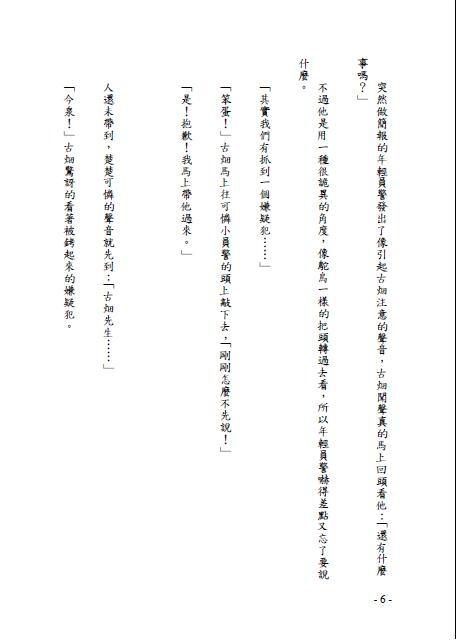 突然做簡報的年輕員警發出了像引起古畑注意的聲音，古畑聞聲真的馬上回頭看他：「還有什麼
事嗎？」
不過他是用一種很詭異的角度，像鴕鳥一樣的把頭轉過去看，所以年輕員警嚇得差點又忘了要說
什麼。
「其實我們有抓到一個嫌疑犯……」
「笨蛋！」古畑馬上往可憐小員警的頭上敲下去，「剛剛怎麼不先說！」
「是！抱歉！我馬上帶他過來。」
人還未帶到，楚楚可憐的聲音就先到：「古畑先生……」
「今泉！」古畑驚訝的看著被銬起來的嫌疑犯。
- 6 -